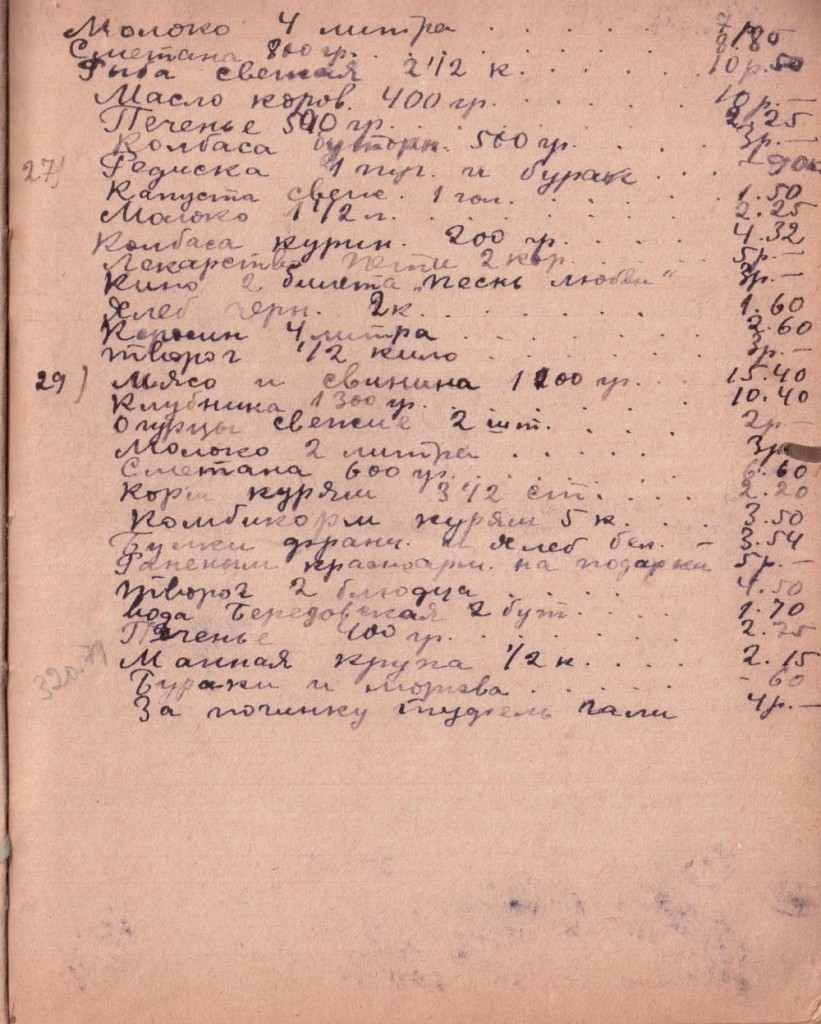 Молоко 4 литра . . . . .
Сметана 800 гр. . . . . . 8.80
Рыба свежая 2 1/2 к. . . . . 10р.50
Масло коров. 400 гр. . . . . 10р.—
Печенье 500 гр. . . . . . 2.25
Колбаса бутерб. 500 гр. . . 3р.—
27) Редиска 1 пуч. и бурак . . . -90к
Капуста свеж. 1 гол. . . . . 1.50
Молоко 1 1/2 л. . . . . . 2.25
Колбаса курин. 200 гр. . . . 4.32
Лекарство Пети 2 кор. . . . 5р.—
Кино 2 билета „Песнь любви" 3р.—
Хлеб черн. 2к. . . . . . 1.60
Керосин 4 литра . . . . . 2.60
Творог 1/2 кило . . . . . 3р.—
29) Мясо и свинина 1200 гр. . . 15.40
Клубника 1300 гр. . . . . . 10.40
Огурцы свежие 2 шт. . . . 2р—
Молоко 2 литра . . . . . 3р
Сметана 600 гр. . . . . . 6.60
Корм курям 3 1/2 ст. . . . 2.20
Комбикорм курям 5 к. . . . 3.50
Булки франц. и хлеб бел. — 3.54
Раненым красноарм. на подарки 5р.—
Творог 2 блюдца . . . . . 4.50
Вода Березовская 2 бут. . . . 1.70
Печенье 400 гр. . . . . . 2.25
320.79 Манная крупа 1/2 к. . . . 2.15
Бураки и морква . . . . . -60
За починку туфель Гали 4р.—